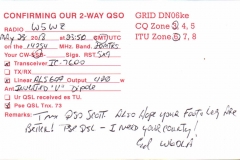 CONFIRMING OUR 2-WAY QSO
GRID DN06ke
CQ Zone 3, 4, 5
ITU Zone 6, 7, 8
RADIO W5WZ
May 28 2018 23:50 GMT/UTC
on the 14254 MHz. Band.
Your CW-SSB- Sigs RST 5x9
Transceiver IC-7600
TX/RX
Linear ALS600 Output 400 w
Ant Inverted "V" Dipole
Ur QSL received as TU.
Pse QSL Tnx. 73
Tnx QSO Scott Also Hope your Foot's feeling
Better! Pse QSL - I need your County!